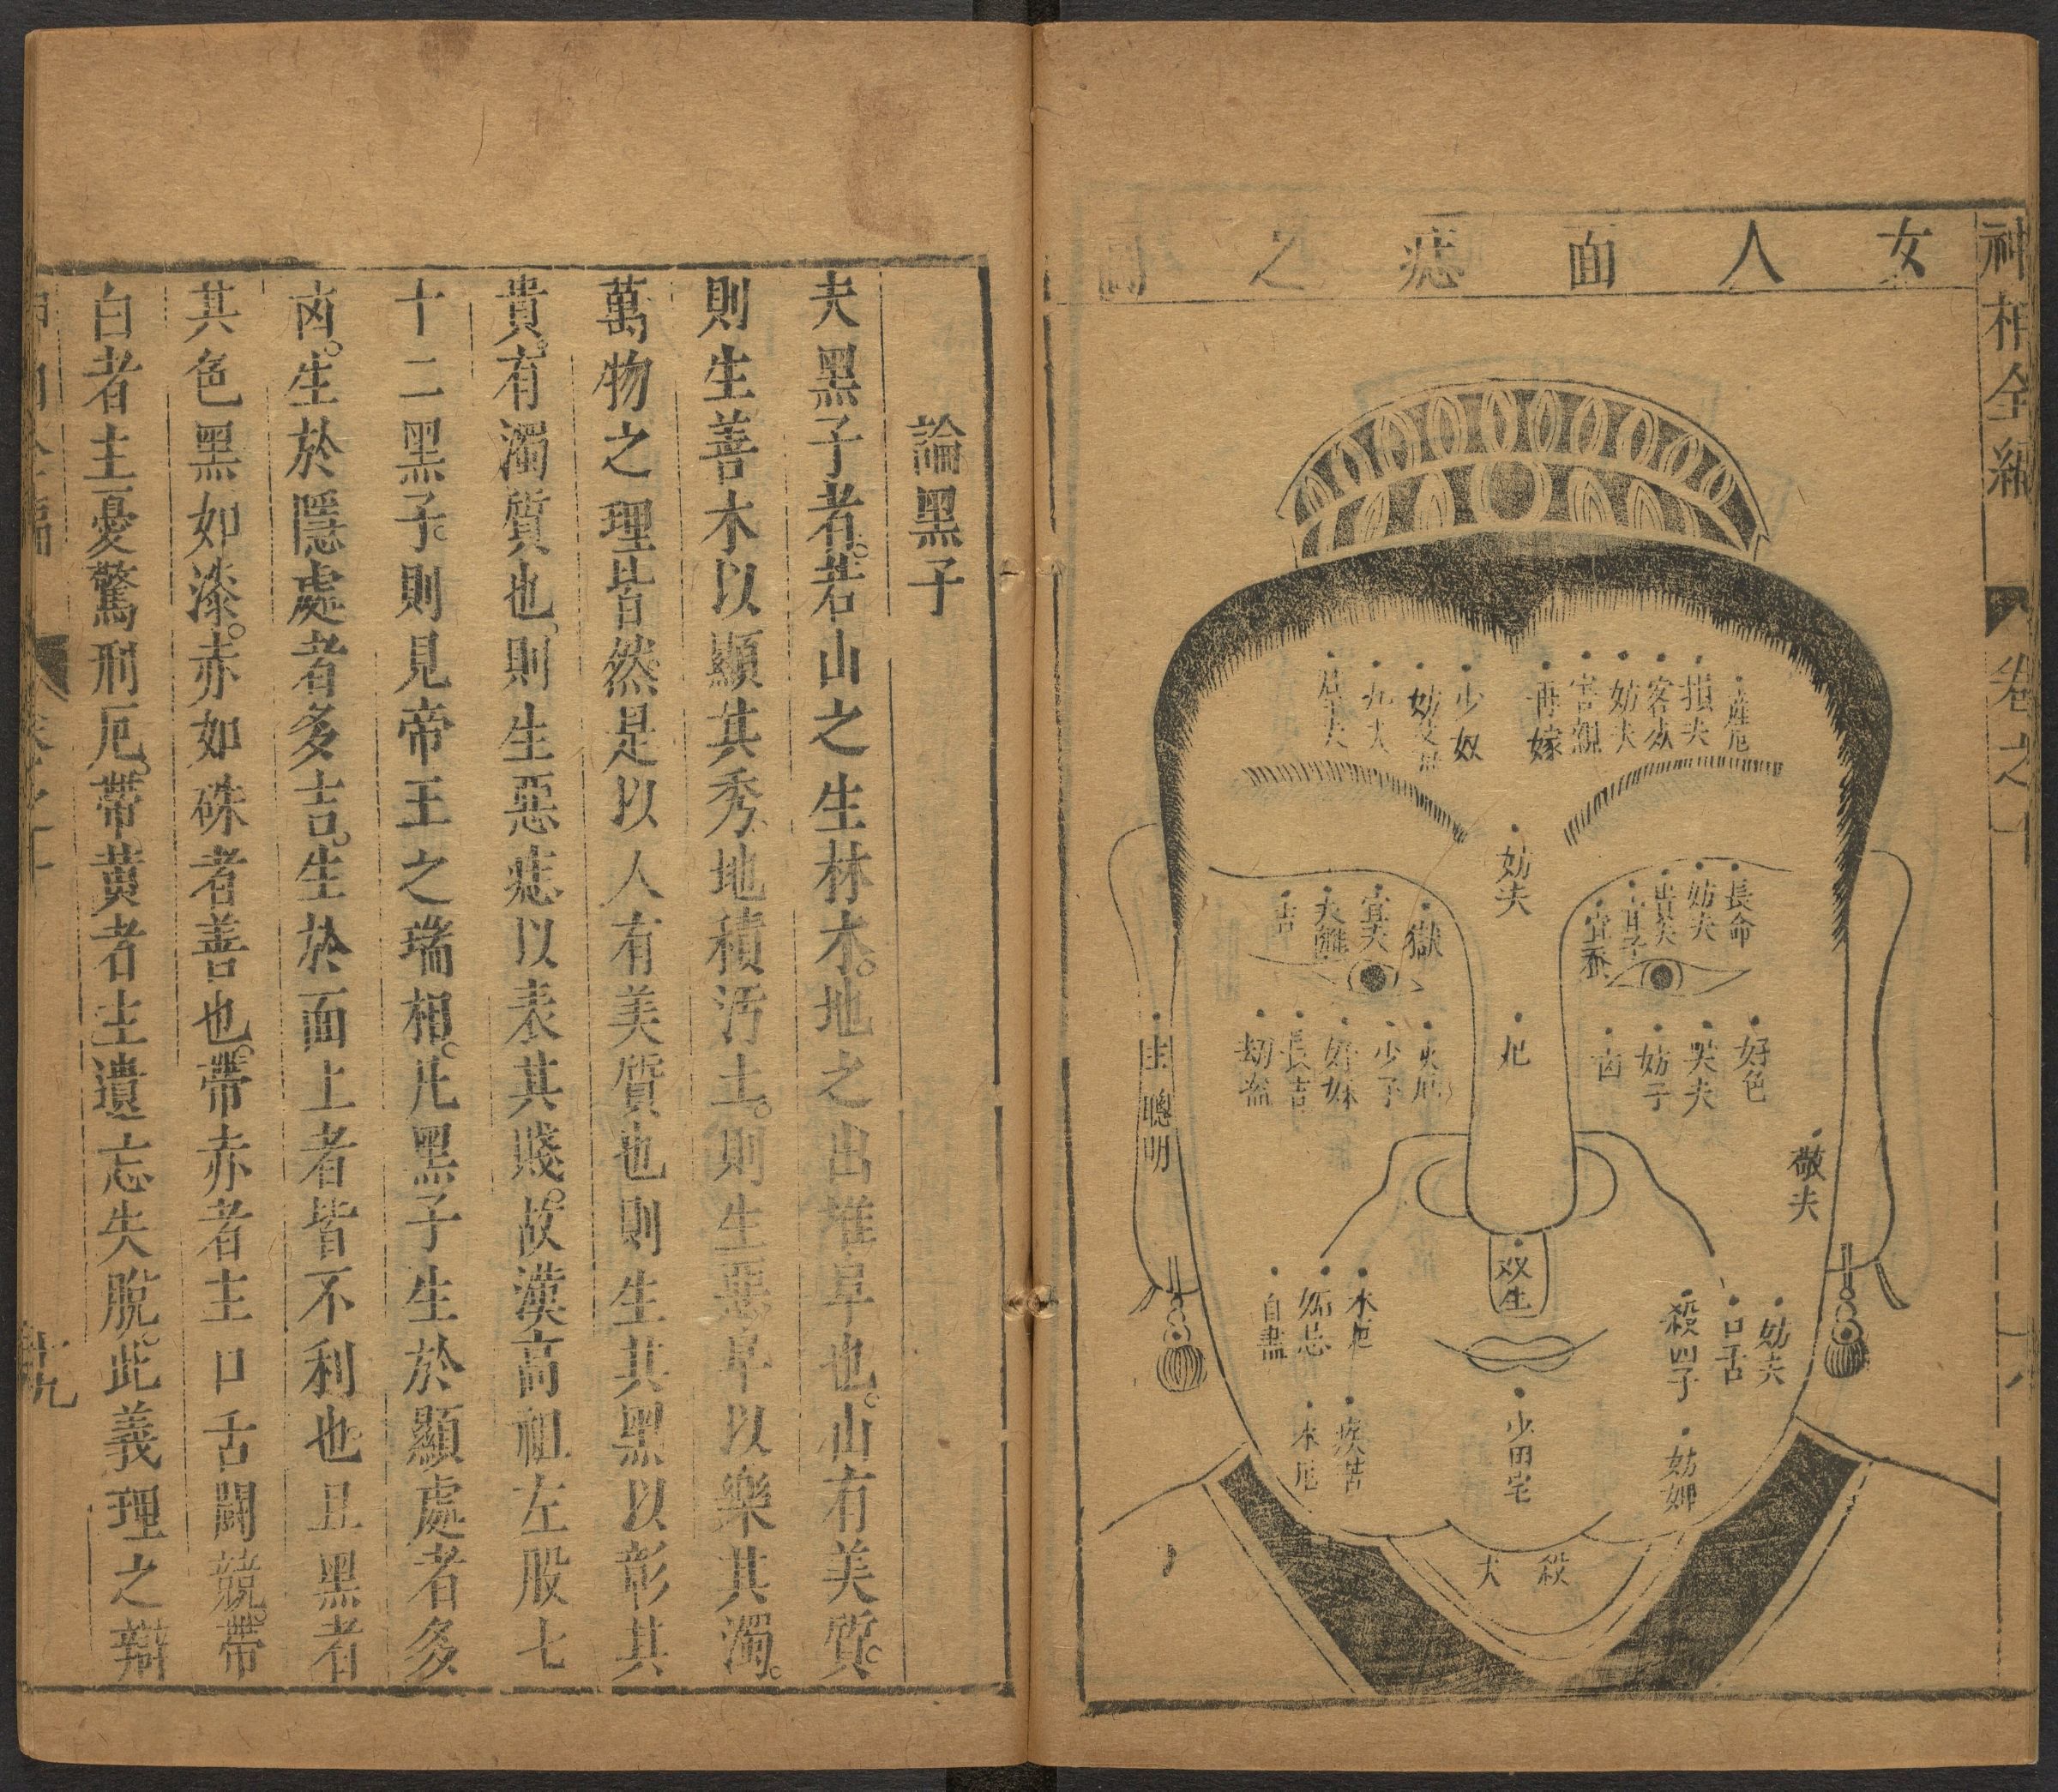 神相全編
卷之十
女人面痣之圖
產厄
損夫
客死
妨夫
害親
再嫁
少奴
妨
九夫
長命
妨夫
宜蚕
妨夫
獄
宜夫
吉
好色
哭夫
妨子
凶
厄
火厄
少子
長吉
劫盜
主聰明
敬夫
双生
妨夫
口舌
殺四子
水厄
妬忌
自盡
妨婢
少田宅
疾苦
水厄
殺
犬
論黑子
夫黑子者若山之生林木地之出堆阜也山有美質
則生善木以顯其秀地積汚土則生惡阜以樂其濁
萬物之理皆然是以人有美質也則生其黑以彰其
貴有濁質也則生惡痣以表其賤故漢高祖左股七
十二黑子則見帝王之瑞相凡黑子生於顯處者多
凶生於隱處者多吉生於面上者皆不利也且黑者
其色黑如漆赤如硃者善也帶赤者主口舌鬪競帶
白者主憂驚刑厄帶黃者主遺忘失脫此義理之辯
十九